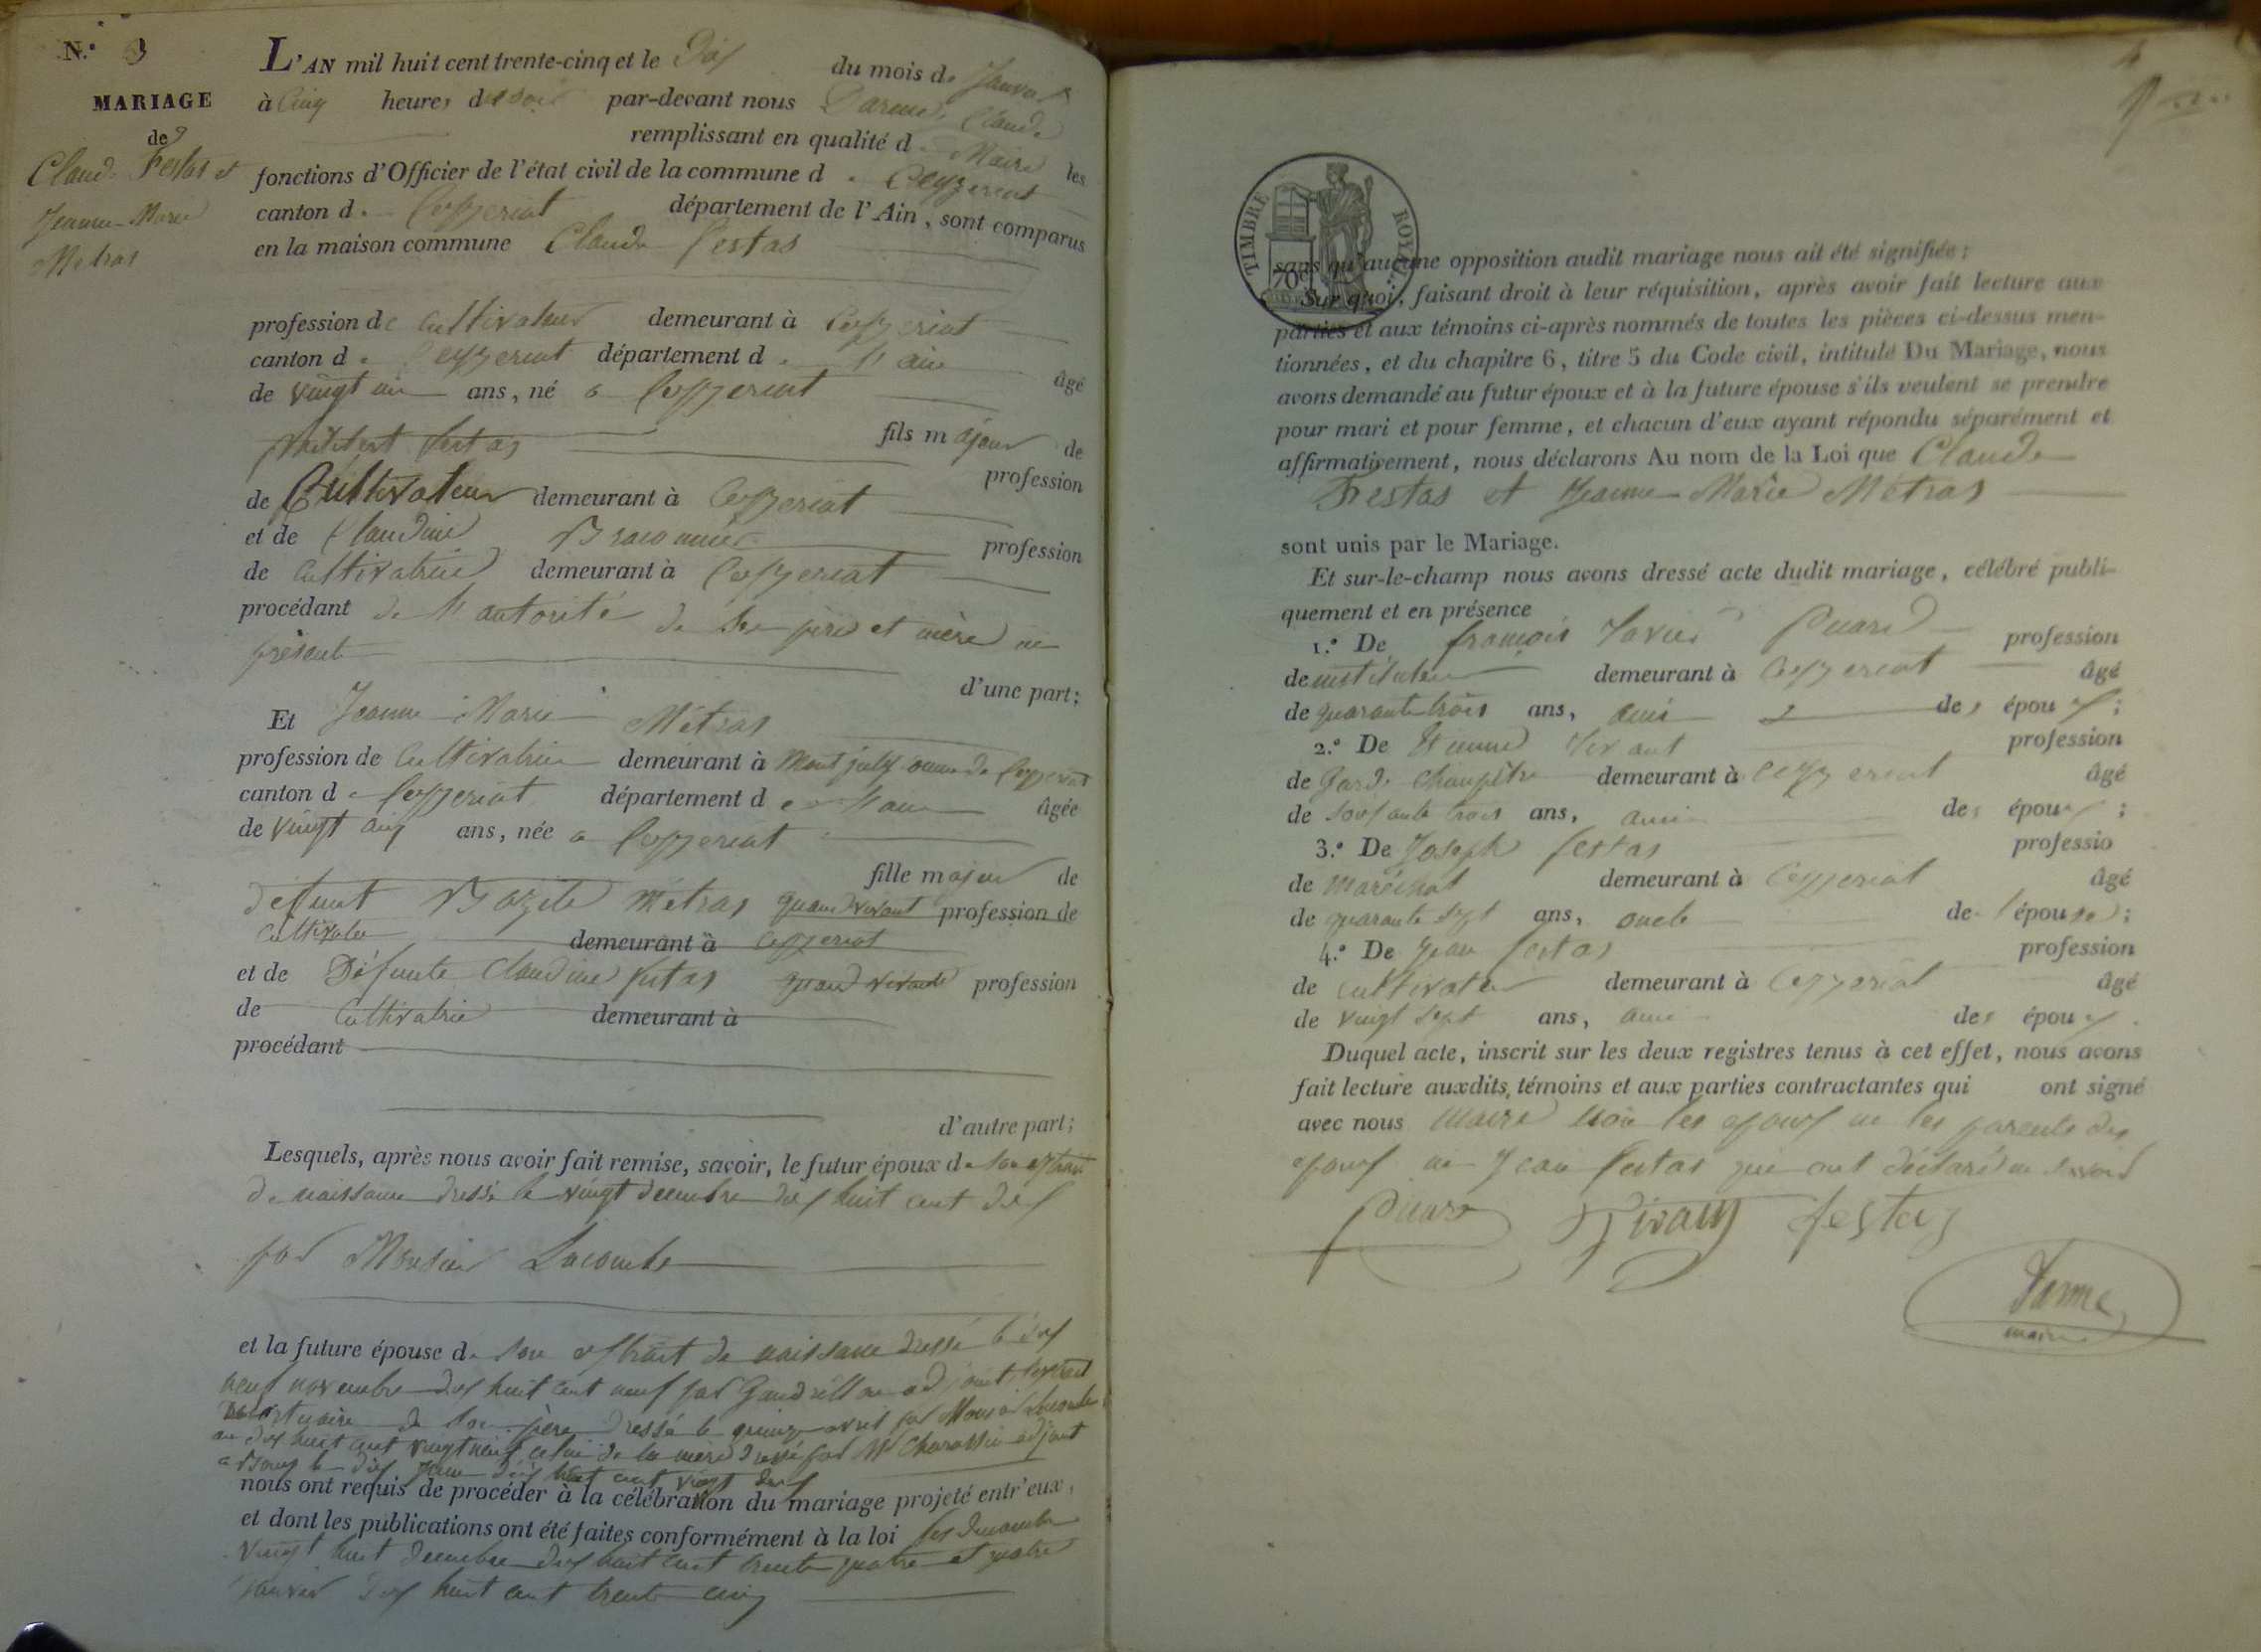 N.° 3
MARIAGE
de
Claude Festas et
Jeanne-Marie
Metras
L'AN mil huit cent trente-cinq et le Dix du mois de Janvier
à cinq heures du soir par-devant nous Claude
remplissant en qualité de Maire les
fonctions d'Officier de l'état civil de la commune de Ceyzeriat
canton de Ceyzeriat département de l'Ain, sont comparus
en la maison commune Claude Festas
profession de cultivateur demeurant à Ceyzeriat
canton de Ceyzeriat département de l'ain âgé
de vingt ans, né à Ceyzeriat
fils majeur de
Festas profession
de Cultivateur demeurant à Ceyzeriat
et de Claudine profession
de cultivatrice demeurant à Ceyzeriat
procédant de l'autorité de ses père et mère
présents
d'une part;
Et Jeanne-Marie Métras
profession de cultivatrice demeurant à de Ceyzeriat
canton de Ceyzeriat département de l'ain âgée
de vingt cinq ans, née à Ceyzeriat
fille majeure de
défunt Métras quand vivant profession de
cultivateur demeurant à Ceyzeriat
et de Défunte Claudine festas quand vivante profession
de cultivatrice demeurant à
procédant
d'autre part;
Lesquels, après nous avoir fait remise, savoir, le futur époux de son extrait
de naissance dressé le vingt decembre dix huit cent dix
par Monsieur Lacombe
et la future épouse de son extrait de naissance dressé le dix
neuf novembre dix huit cent neuf par adjoint, l'extrait
mortuaire de son père dressé le quinze avril par Monsieur Lacombe
an dix huit cent vingt neuf, celui de la mère dressé par Mr adjoint
le dix dix huit cent vingt
nous ont requis de procéder à la célébration du mariage projeté entr'eux,
et dont les publications ont été faites conformément à la loi les dimanches
vingt huit decembre dix huit cent trente quatre et quatre
janvier dix huit cent trente cinq
TIMBRE ROYAL
70c
sans qu'aucune opposition audit mariage nous ait été signifiée;
Sur quoi, faisant droit à leur réquisition, après avoir fait lecture aux
parties et aux témoins ci-après nommés de toutes les pièces ci-dessus men-
tionnées, et du chapitre 6, titre 5 du Code civil, intitulé Du Mariage, nous
avons demandé au futur époux et à la future épouse s'ils veulent se prendre
pour mari et pour femme, et chacun d'eux ayant répondu séparément et
affirmativement, nous déclarons Au nom de la Loi que Claude
Festas et Jeanne-Marie Métras
sont unis par le Mariage.
Et sur-le-champ nous avons dressé acte dudit mariage, célébré publi-
quement et en présence
1.° De françois Xavier profession
de instituteur demeurant à Ceyzeriat âgé
de quarante trois ans, ami des époux;
2.° De Etienne profession
de Garde Champêtre demeurant à Ceyzeriat âgé
de soixante trois ans, ami des époux;
3.° De Joseph festas professio
de maréchal demeurant à Ceyzeriat âgé
de quarante sept ans, oncle de l'épouse;
4.° De Jean festas profession
de cultivateur demeurant à Ceyzeriat âgé
de vingt sept ans, ami des époux.
Duquel acte, inscrit sur les deux registres tenus à cet effet, nous avons
fait lecture auxdits témoins et aux parties contractantes qui ont signé
avec nous Maire non les epoux ni les parents des
epoux ni Jean festas qui ont déclaré ne savoir
festas
maire